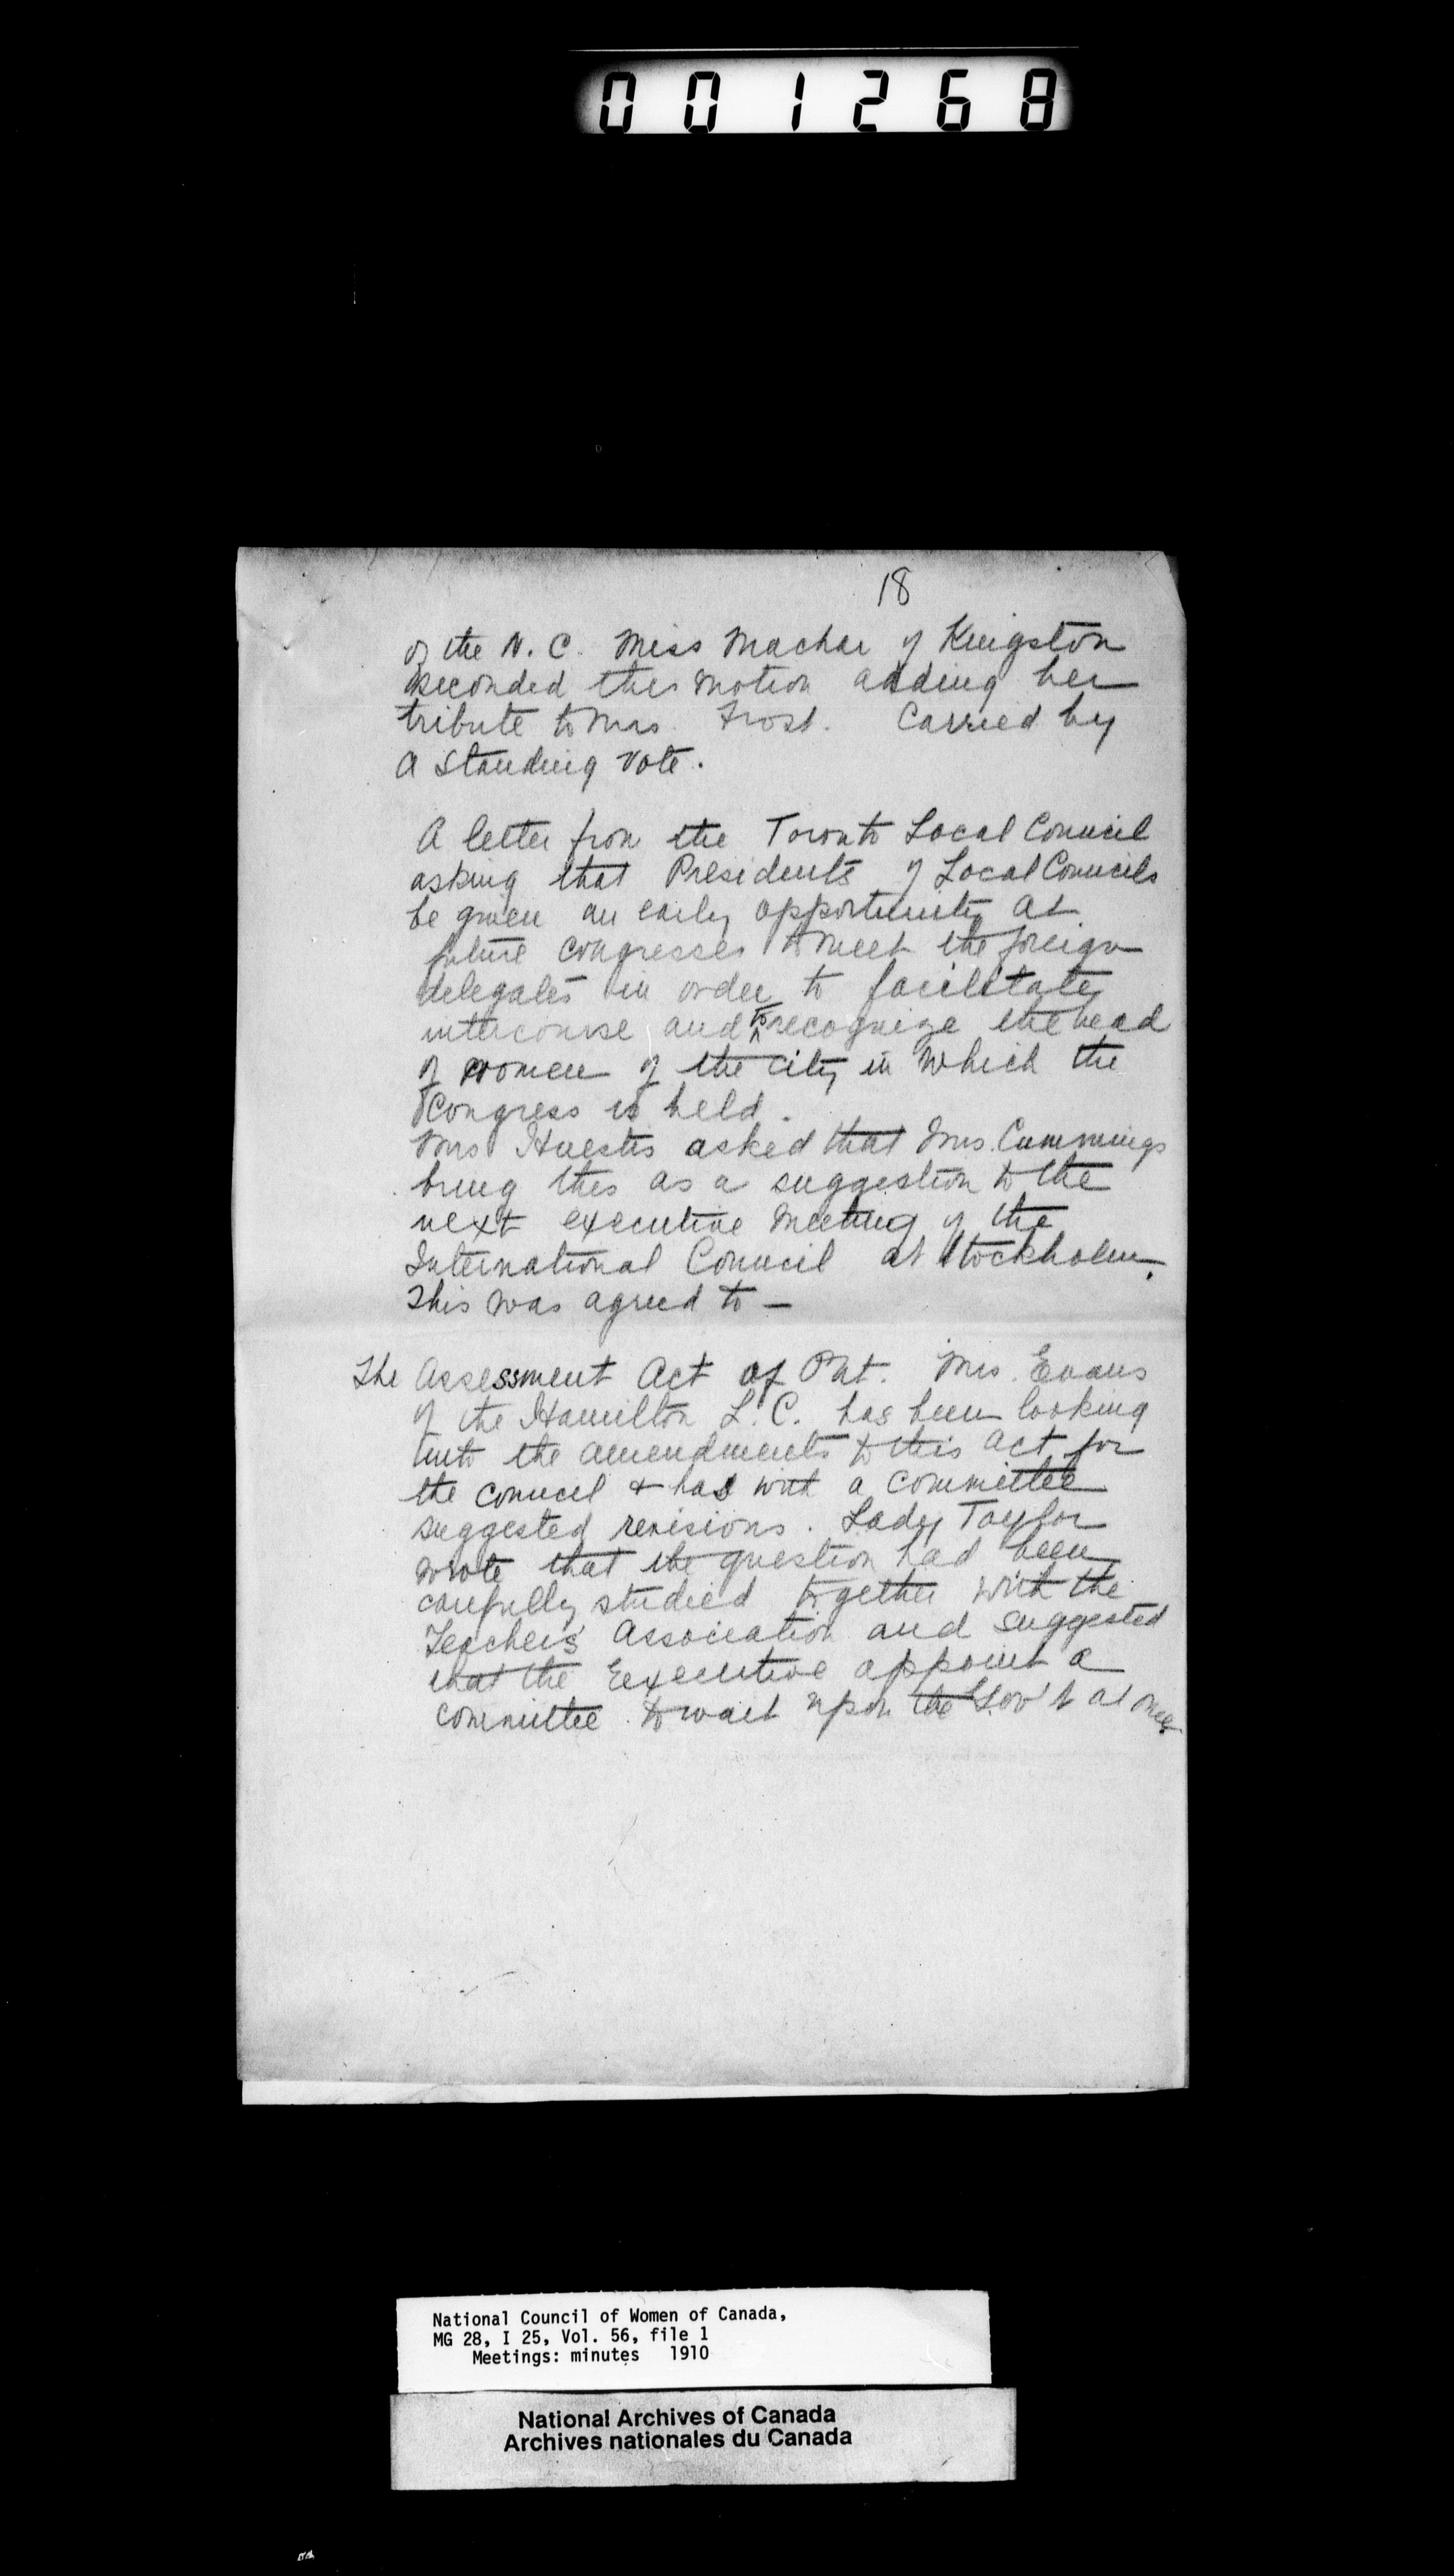 001268
18
of the N. C. Miss Machar of Kingston
seconded this motion adding her
tribute to Mrs. Frost. Carried by
a standing vote.
A letter from the Toronto Local Council
asking that Presidents of Local Councils
be given an early opportunity at
future congresses to meet the foreign
delegates in order to facilitate
intercourse and to recognize the head
of women of the city in which the
Congress is held.
Mrs Huestis asked that Mrs. Cummings
bring this as a suggestion to the
next executive meeting of the
International Council at Stockholm.
This was agreed to —
The Assessment Act of Ont. Mrs. Evans
of the Hamilton L. C. has been looking
into the amendments to this act for
the council + has with a committee
suggested revisions. Lady Taylor
wrote that the question had been
carefully studied together with the
Teachers' Association and suggested
that the Executive appoint a
committee to wait upon the Gov't at once.
National Council of Women of Canada,
MG 28, I 25, Vol. 56, file 1
Meetings: minutes 1910
National Archives of Canada
Archives nationales du Canada